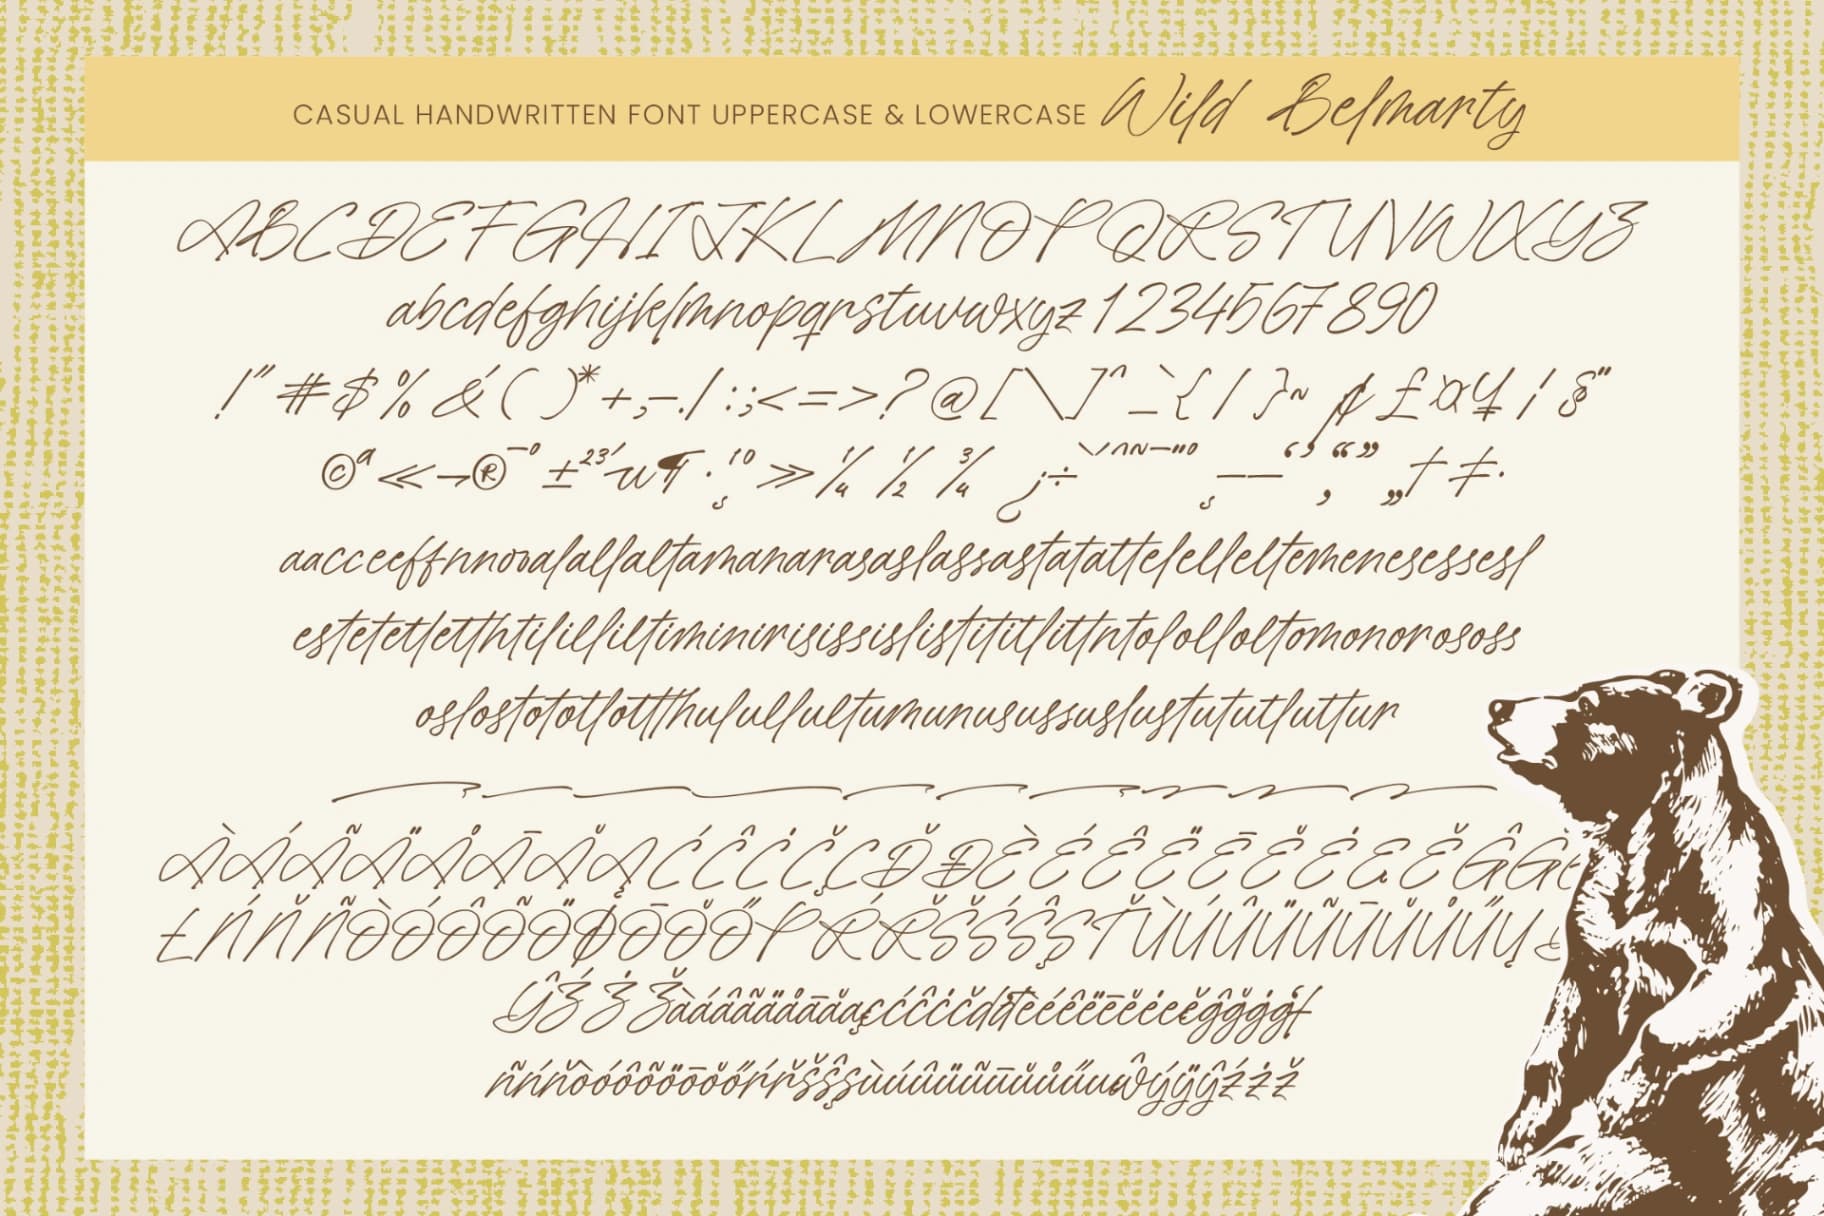 CASUAL HANDWRITTEN FONT UPPERCASE & LOWERCASE Wild Belmarty
ABCDEFGHIJKLMNOPQRSTUVWXYZ
abcdefghijklmnopqrstuvwxyz1234567890
!"#$%&'()*+,-./:;<=>?@[\]^_`{|}~¢£¤¥¦§¨
©ª«¬®¯°±²³´µ¶·¸¹º»¼½¾¿÷ˆ˜–—‘’‚“”„†‡•
aacceeffnnooalallaltamanarasaslassastatattelelleltemenesessesl
estetetletthtililliltiminirisissislistititlittntololloltomonorososs
oslostototlottthulullultumunusussuslustututluttur
ÀÁÂÃÄÅĀĂĄĆĈĊČÇĎĐÈÉÊËĒĔĖĘĚĜĞ
ŁŃŇÑÒÓÔÕÖØŌŎŐPŔŘŠŚŜŞŤÙÚÛÜŨŪŬŮŰŲ
ŶŹŻŽàáâãäåāăąçćĉċčďđèéêëēĕėęěĝğġģ
ñńňòóôõöōŏőŕřšŝşùúûüũūŭůűųŵýÿŷźżž